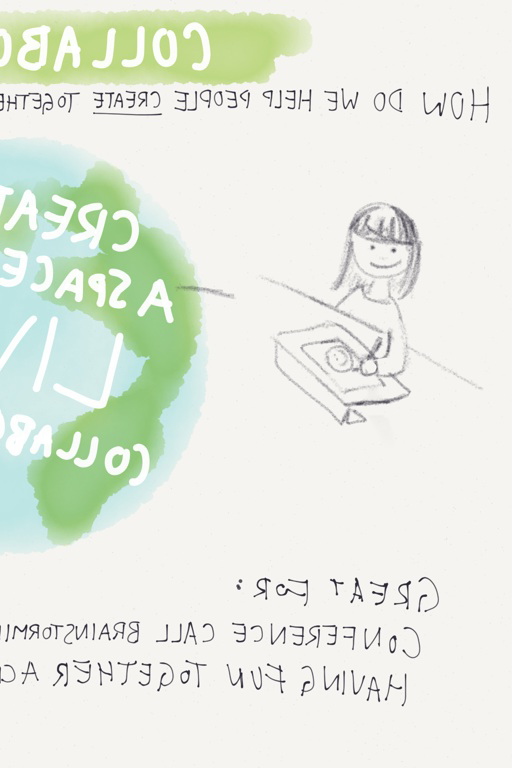 COLLABO
HOW DO WE HELP PEOPLE CREATE TOGETHE
CREAT
A SPACE
LIV
COLLABO
GREAT FOR:
CONFERENCE CALL BRAINSTORMIN
HAVING FUN TOGETHER AC